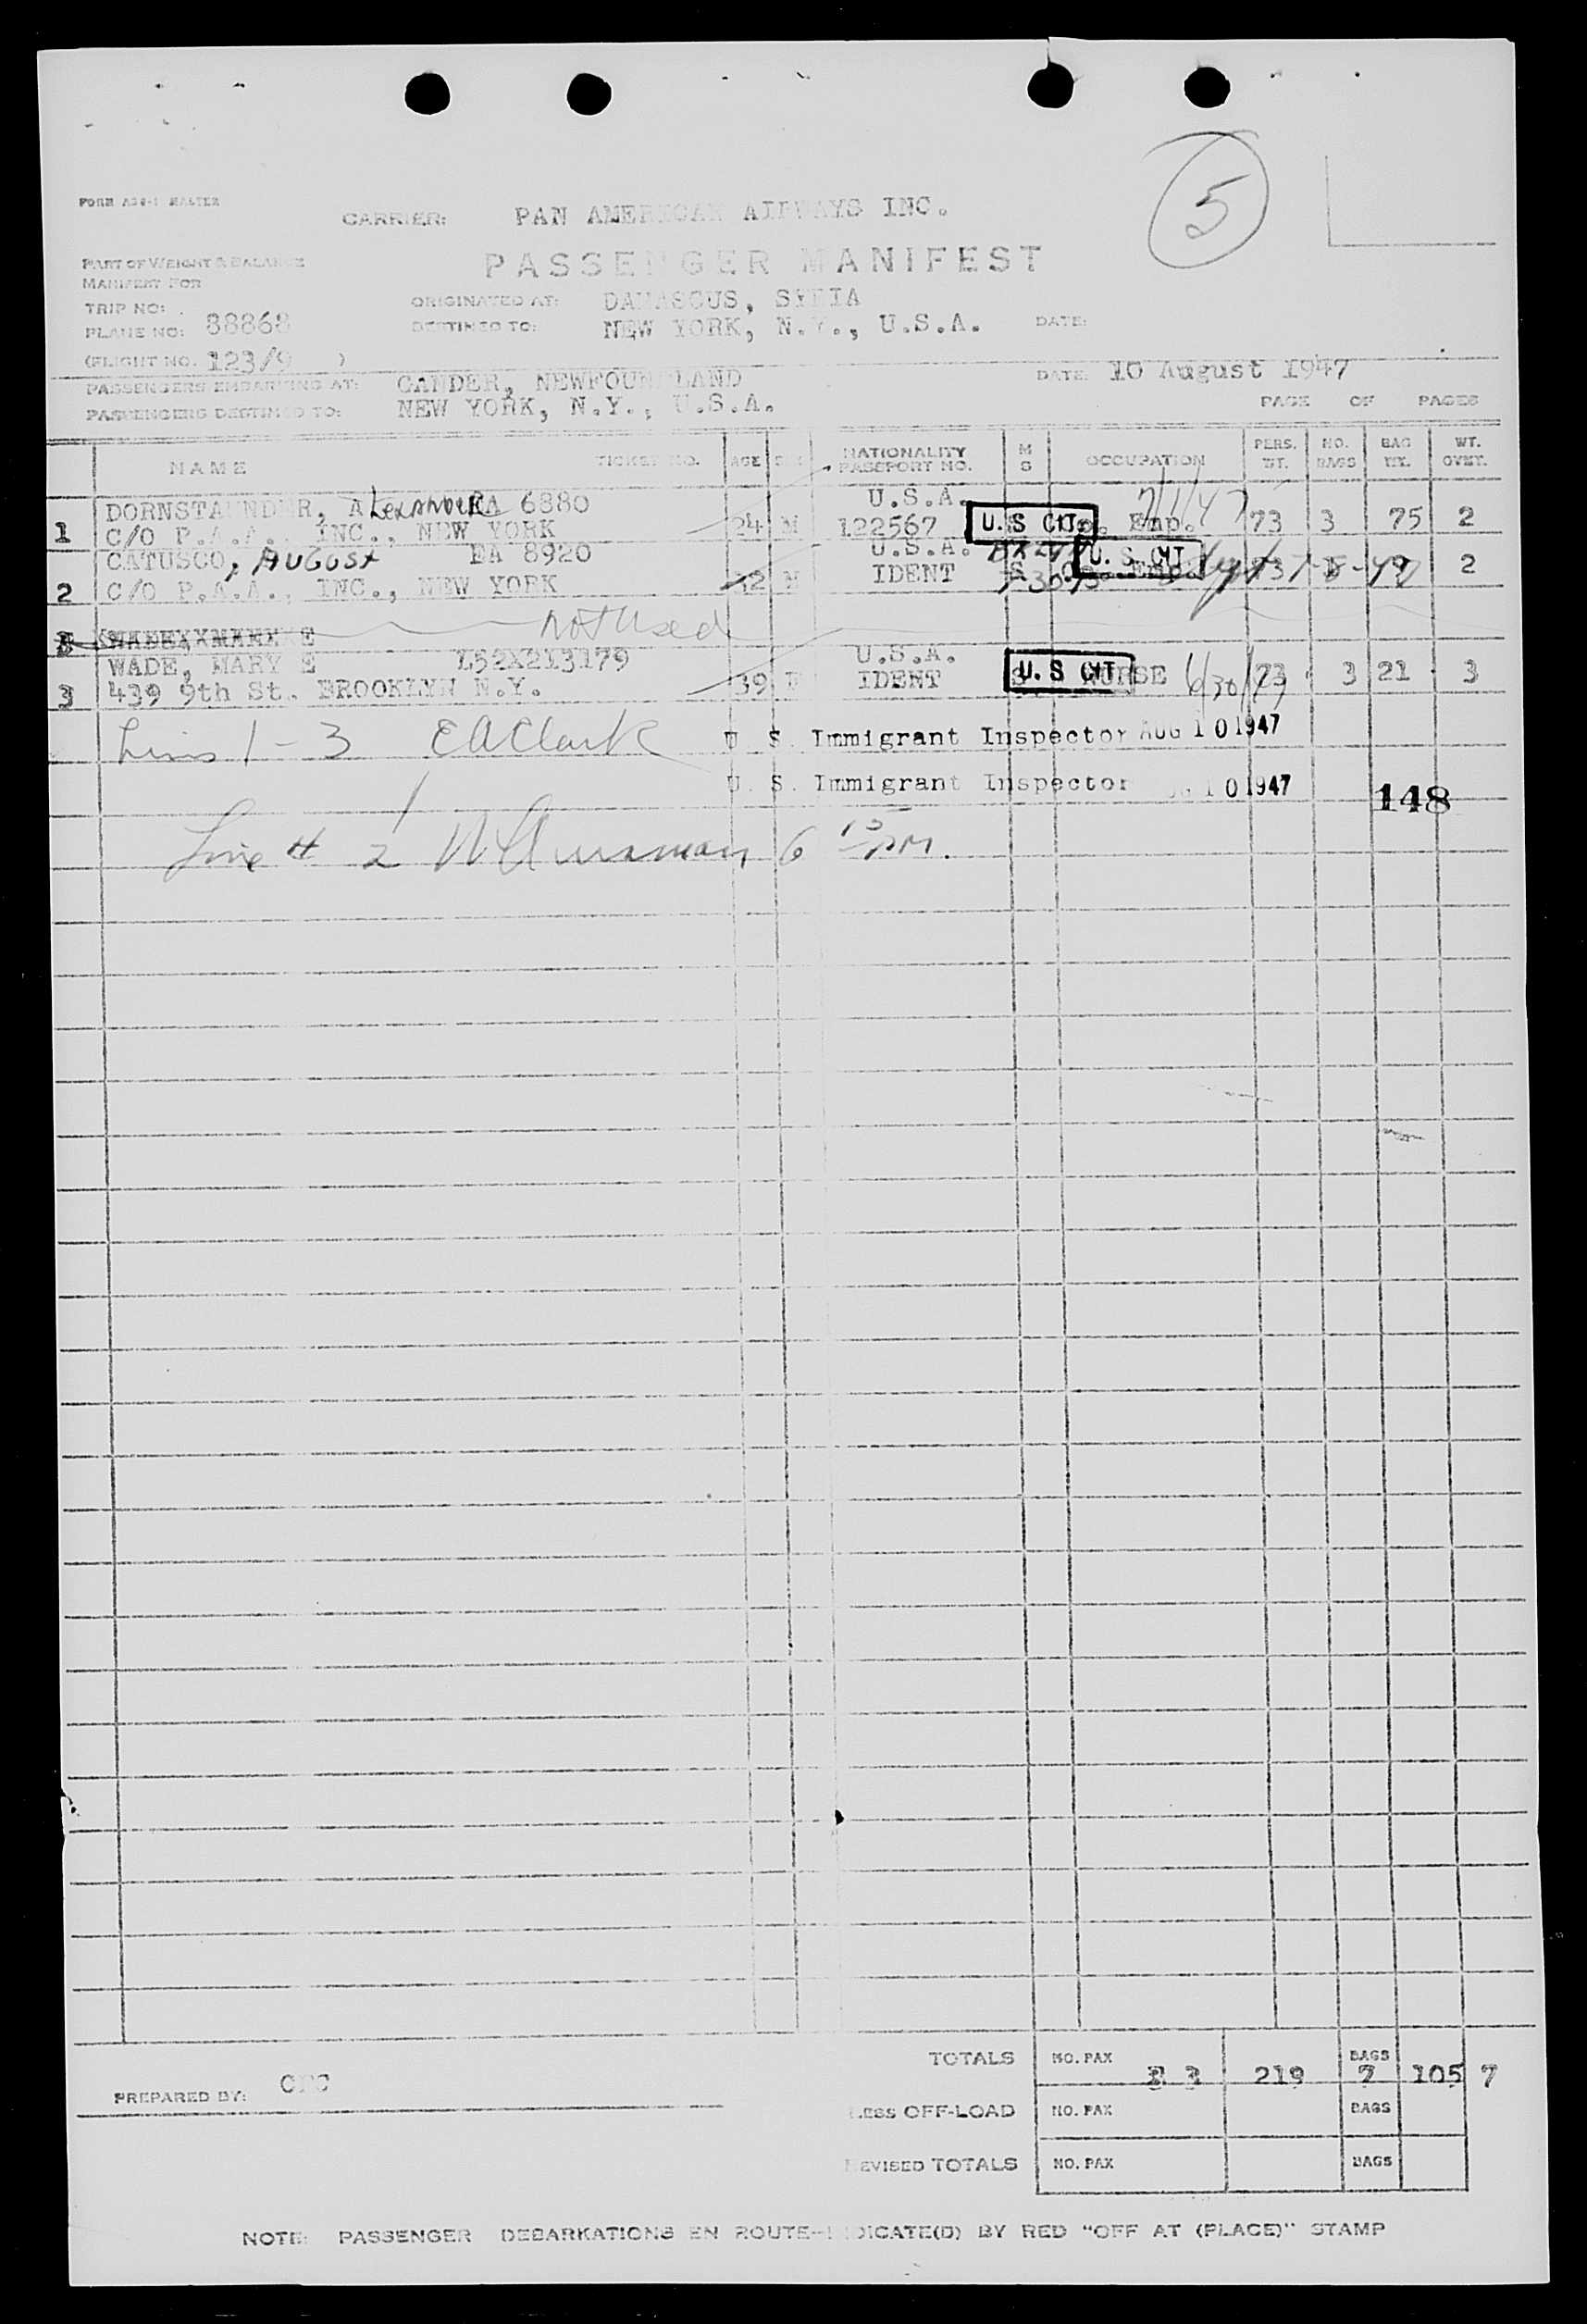 5
FORM
CARRIER: PAN AMERICAN AIRWAYS INC.
PASSENGER MANIFEST
PART OF WEIGHT & BALANCE
MANIFEST FOR
TRIP NO:
ORIGINATED AT: DAMASCUS, SYRIA
PLANE NO: 88868
DESTINED TO: NEW YORK, N.Y., U.S.A. DATE:
(FLIGHT NO. 123/9 )
PASSENGERS EMBARKING AT: GANDER, NEWFOUNDLAND DATE: 10 August 1947
PASSENGERS DESTINED TO: NEW YORK, N.Y., U.S.A. PAGE OF PAGES
NAME TICKET NO. AGE SEX NATIONALITY PASSPORT NO. M S OCCUPATION PERS. WT. NO. BAGS BAG WT. WT. OVET.
DORNSTAUNDER, Alexander EA 6880 U.S.A. 7/1/47
1 C/O P.A.A. INC., NEW YORK 24 M 122567 U.S CIT. Emp. 73 3 75 2
CATUSCO, August EA 8920 U.S.A.
2 C/O P.A.A., INC., NEW YORK 42 M IDENT S U. S. CIT Emp. 73 2
Not Used
WADE, MARY E L52X213179 U.S.A.
3 439 9th St. BROOKLYN N.Y. 39 F IDENT U.S CIT NURSE 6/30/ 73 3 21 3
Lines 1-3 EA Clark U S. Immigrant Inspector AUG 10 1947
U. S. Immigrant Inspector 10 1947 148
Line # 2 6 15 PM.
TOTALS NO. PAX 3 219 BAGS 7 105 7
PREPARED BY: CFC
LESS OFF-LOAD NO. PAX BAGS
REVISED TOTALS NO. PAX BAGS
NOTE: PASSENGER DEBARKATIONS EN ROUTE--INDICATE(D) BY RED "OFF AT (PLACE)" STAMP